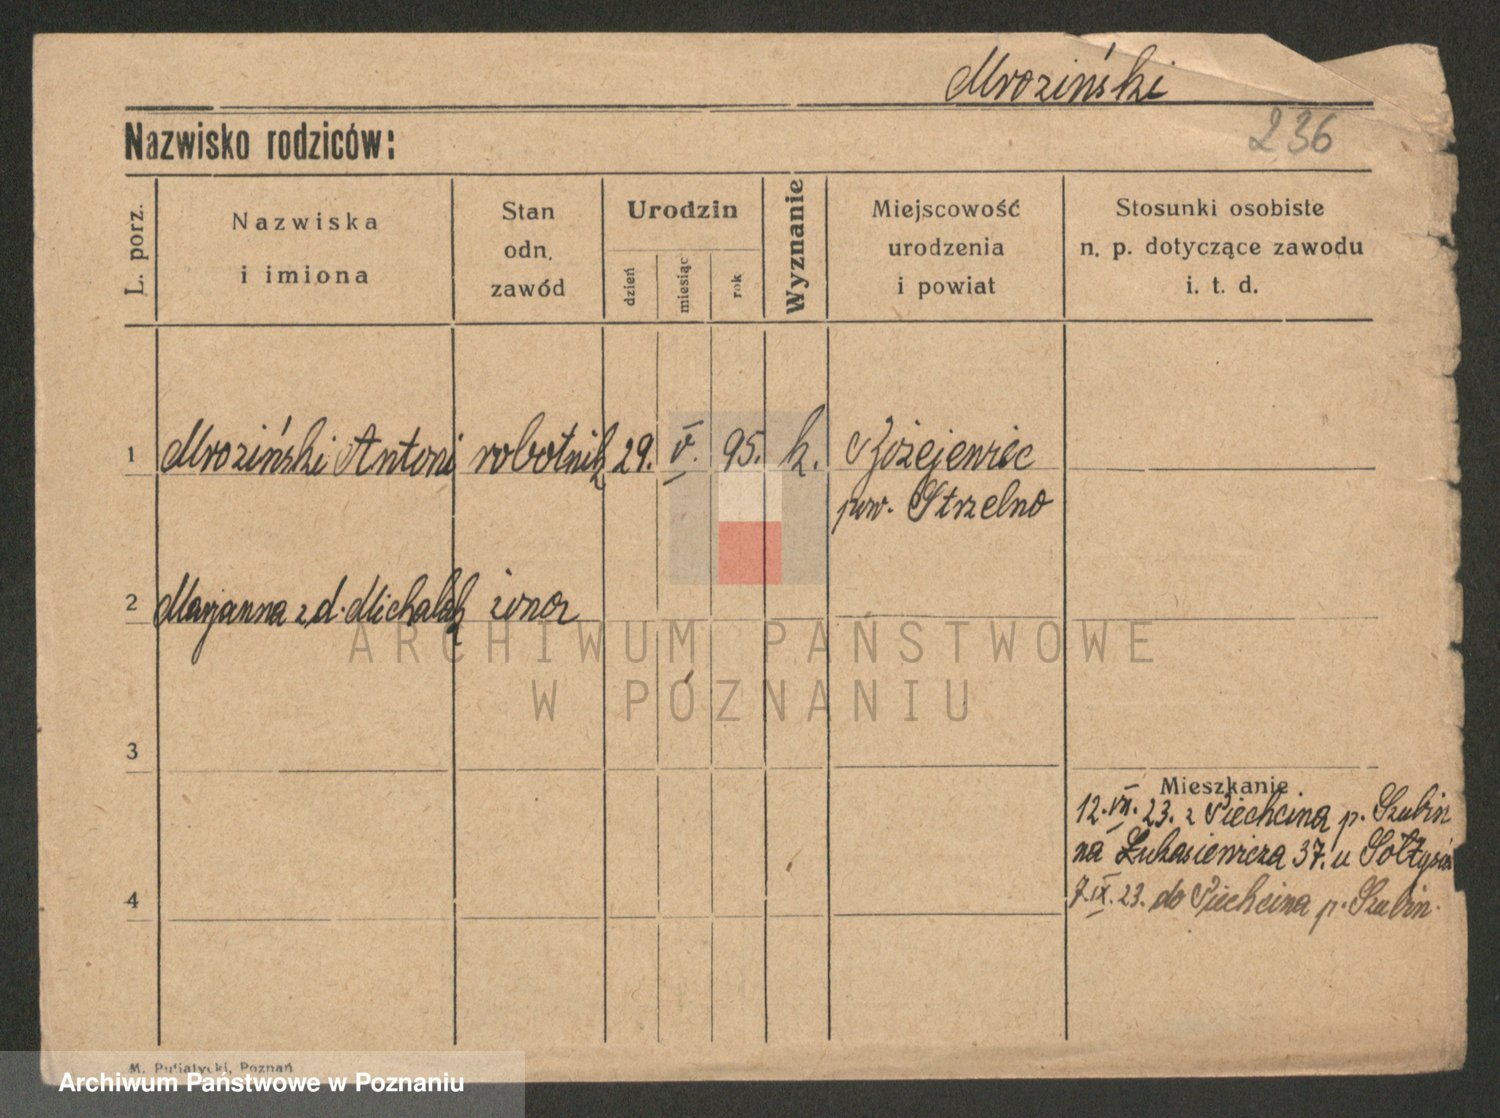 Mroziński
Nazwisko rodziców:
236
L. porz.
Nazwiska
i imiona
Stan
odn.
zawód
Urodzin
dzień
miesiąc
rok
Wyznanie
Miejscowość
urodzenia
i powiat
Stosunki osobiste
n. p. dotyczące zawodu
i. t. d.
1 Mroziński Antoni robotnik 29. V. 95. k.
pow. Strzelno
2 Marjanna z d. Michalak żona
3
Mieszkanie
12. VII. 23. z Piechcina p. Szubin
na Łukasiewicza 37. u
4
7. IX. 23. do Piechcina p. Szubin.
M. Putiatycki, Poznań
ARCHIWUM PAŃSTWOWE
W POZNANIU
Archiwum Państwowe w Poznaniu